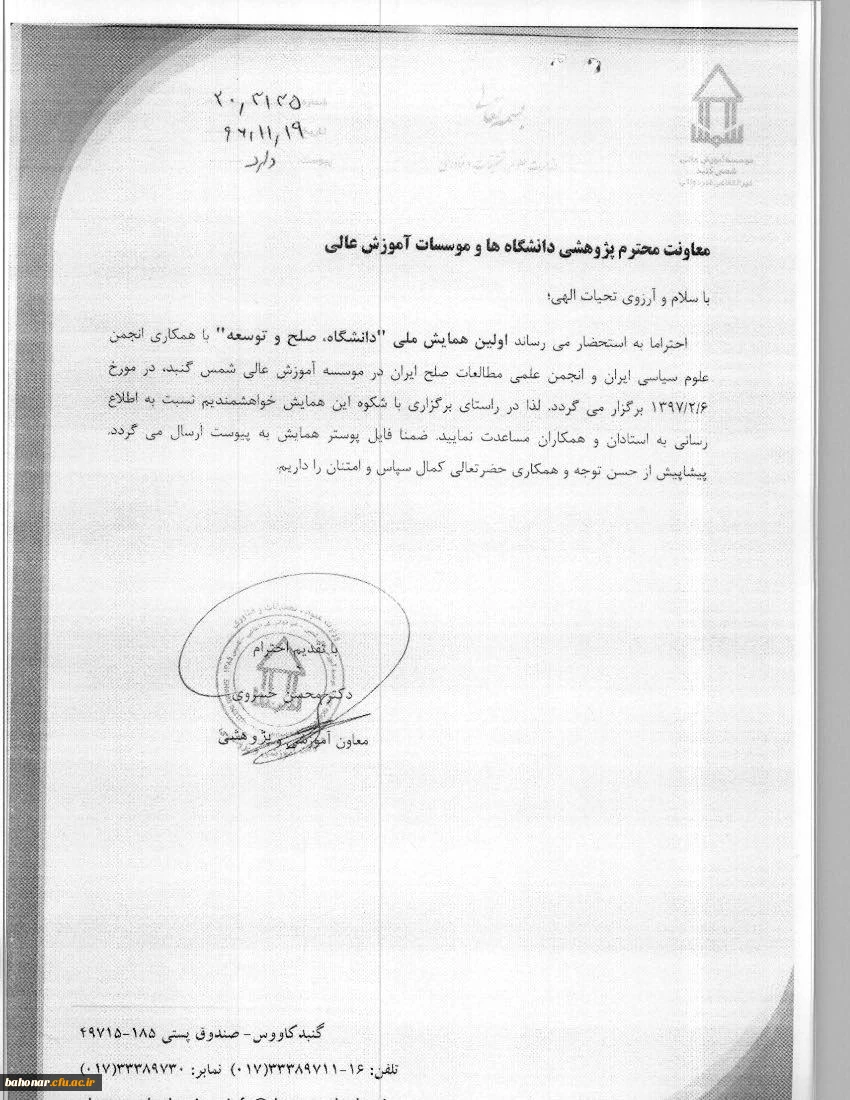 بسمه تعالی
شماره ۲۰,۳۱۴۵
تاریخ ۹۶,۱۱,۱۹
پیوست دارد
شمس
موسسه آموزش عالی
شمس گنبد
غیرانتفاعی غیردولتی
معاونت محترم پژوهشی دانشگاه ها و موسسات آموزش عالی
با سلام و آرزوی تحیات الهی؛
احتراما به استحضار می رساند اولین همایش ملی "دانشگاه، صلح و توسعه" با همکاری انجمن
علوم سیاسی ایران و انجمن علمی مطالعات صلح ایران در موسسه آموزش عالی شمس گنبد، در مورخ
۱۳۹۷/۲/۶ برگزار می گردد. لذا در راستای برگزاری با شکوه این همایش خواهشمندیم نسبت به اطلاع
رسانی به استادان و همکاران مساعدت نمایید. ضمنا فایل پوستر همایش به پیوست ارسال می گردد.
پیشاپیش از حسن توجه و همکاری حضرتعالی کمال سپاس و امتنان را داریم.
با تقدیم احترام
دکتر محسن خسروی
معاون آموزشی و پژوهشی
گنبد کاووس- صندوق پستی ۱۸۵-۴۹۷۱۵
تلفن: ۱۶-۳۳۳۸۹۷۱۱(۰۱۷) نمابر: ۳۳۳۸۹۷۳۰(۰۱۷)
bahonar.cfu.ac.ir